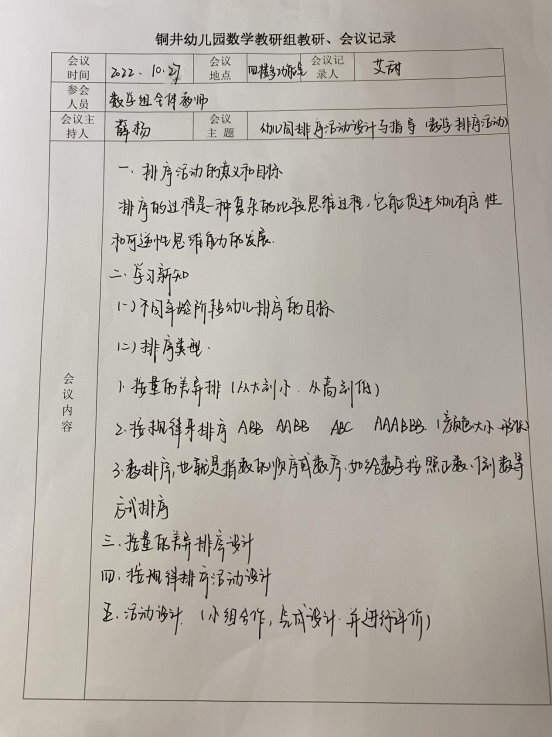 铜井幼儿园数学教研组教研、会议记录
会议时间 2022.10.27 会议地点 四楼多功能室 会议记录人 艾甜
参会人员 数学组全体教师
会议主持人 薛杨 会议主题 幼儿园排序活动设计与指导(数学排序活动)
会议内容
一、排序活动的意义和目标
排序的过程是一种复杂的比较思维过程,它能促进幼儿有序性
和可逆性思维能力的发展.
二、学习新知
(一)不同年龄阶段幼儿排序的目标
(二)排序类型.
1.按量的差异排(从大到小.从高到低)
2.按规律来排序 ABB AABB ABC AAABBB.(颜色大小形状
3.数排序,也就是指数的顺序或数序.如给数字按照正数、倒数等
方式排序
三、按量的差异排序设计
四、按规律排序活动设计
五、活动设计.(小组合作,完成设计.并进行评价)